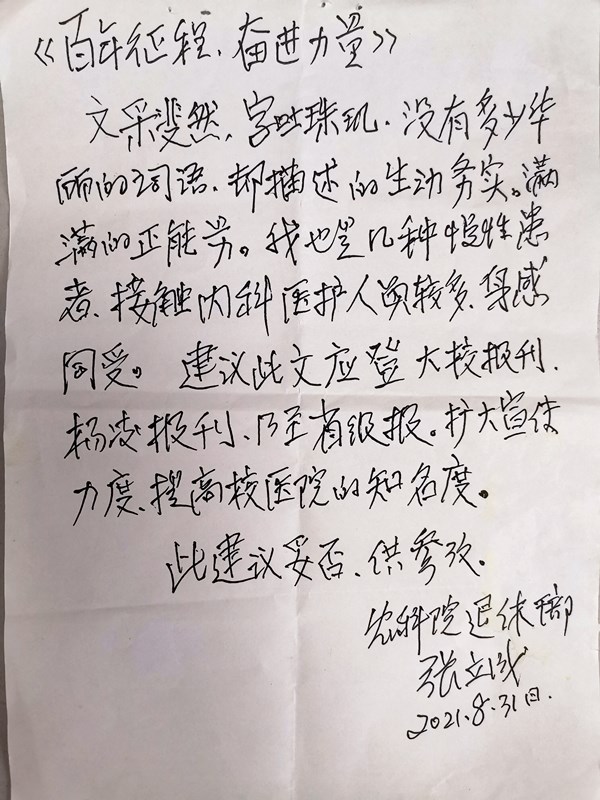 《百年征程、奋进力量》
文采斐然,字吐珠玑、没有多少华
丽的词语、却描述的生动务实。满
满的正能量。我也是几种慢性患
者、接触内科医护人员较多、身感
同受。建议此文应登大校报刊、
杨凌报刊、乃至省级报。扩大宣传
力度、提高校医院的知名度。
此建议妥否、供参考。
农科院退休干部
张立
2021.8.31日.